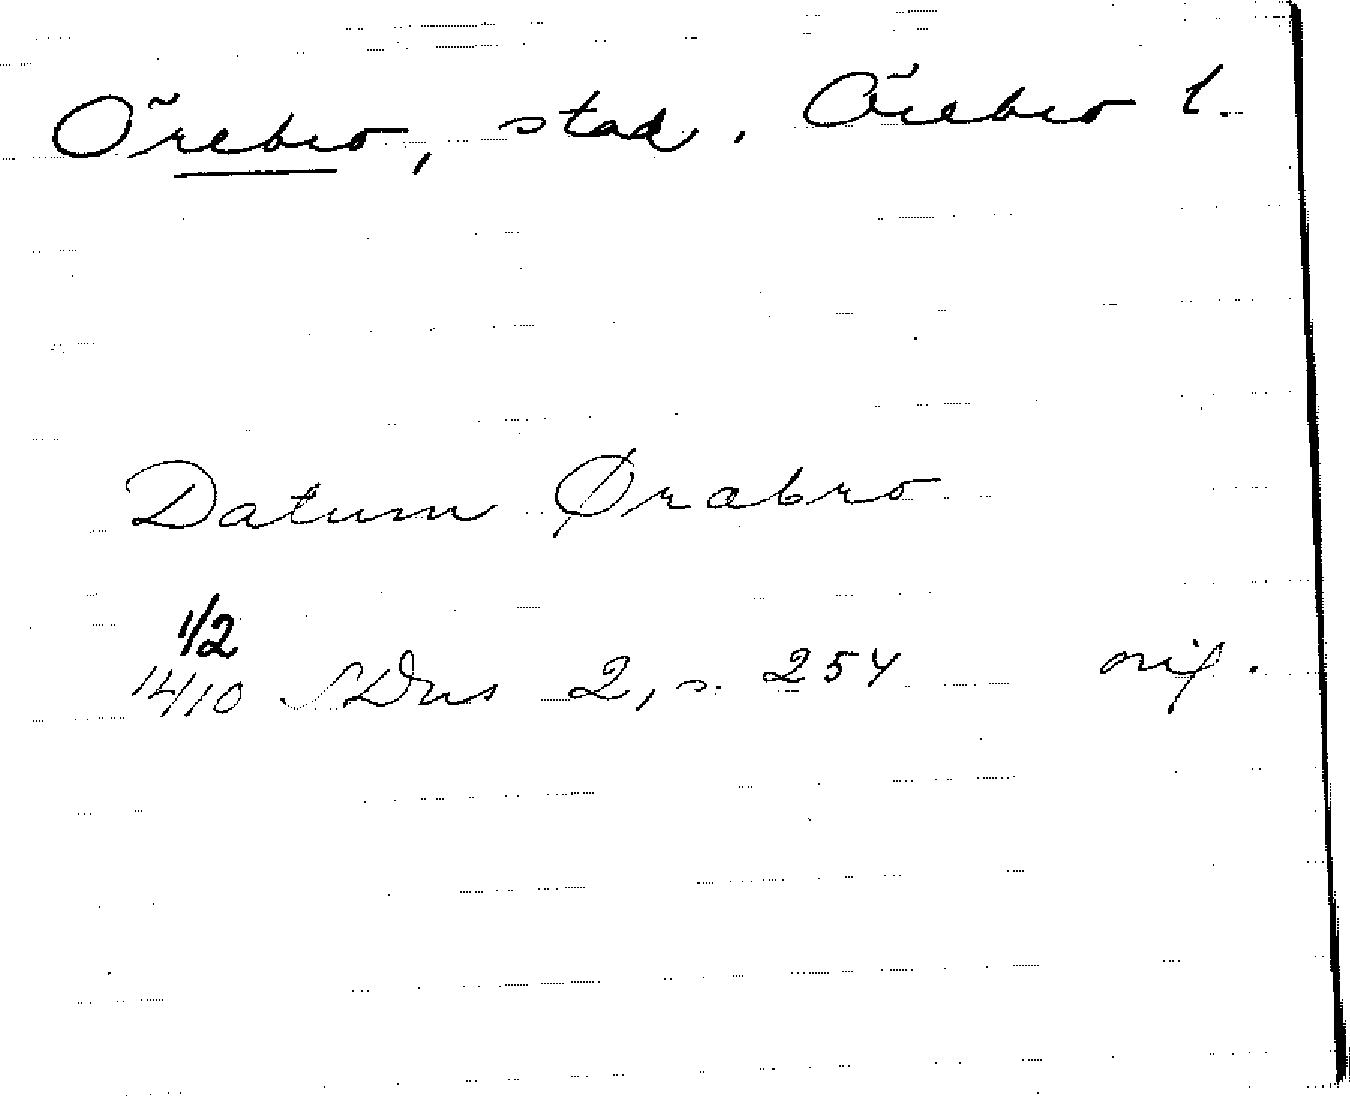 Örebro, stad. Örebro l.
Datum Ørabro
1/2
14/10 SDns 2, s. 254 orig.